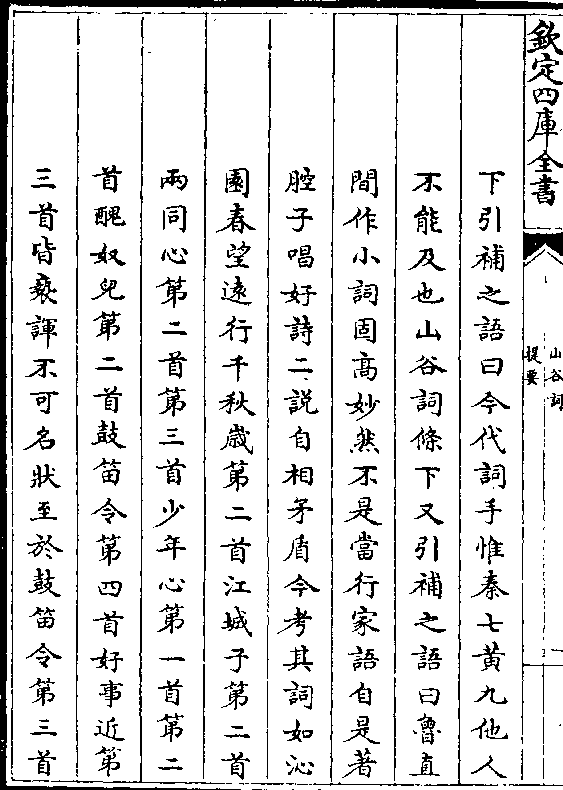 欽定四庫全書
山谷詞
提要
下引補之語曰今代詞手惟秦七黄九他人
不能及也山谷詞條下又引補之語曰魯直
間作小詞固髙妙然不是當行家語自是著
腔子唱好詩二説自相矛盾今考其詞如沁
園春望逺行千秋歳第二首江城子第二首
兩同心第二首第三首少年心第一首第二
首醜奴兒第二首鼓笛令第四首好事近第
三首皆䙝諢不可名狀至於鼓笛令第三首